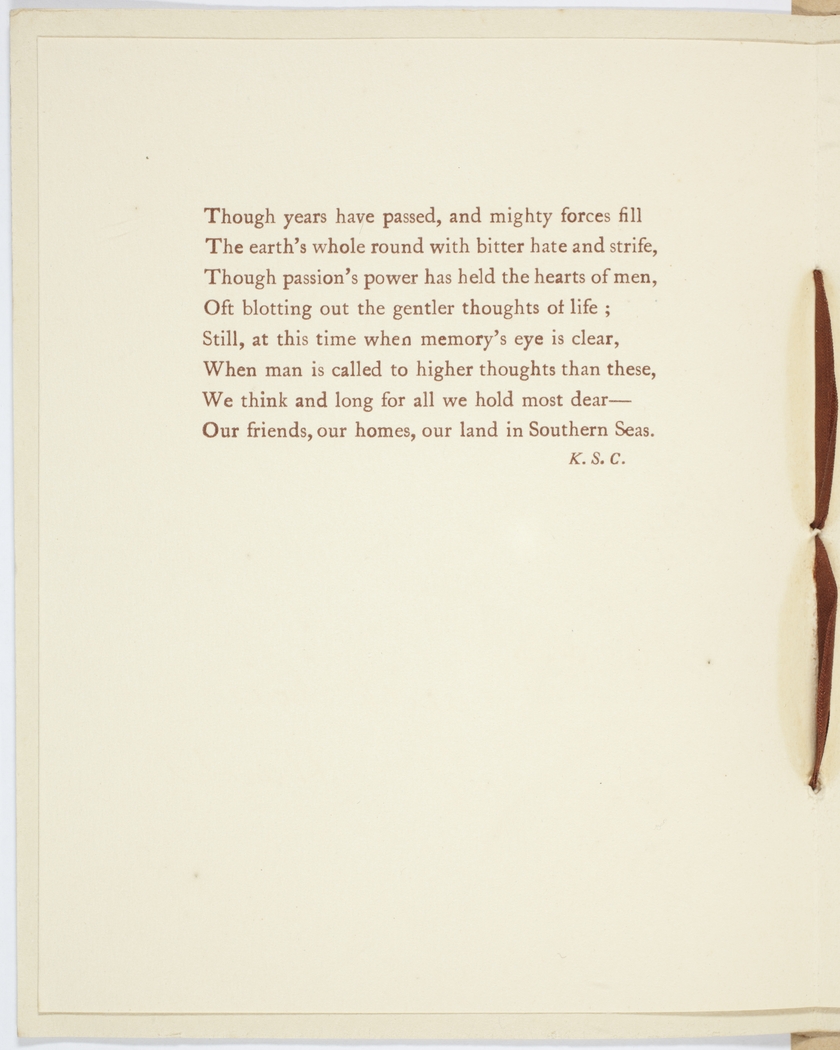 Though years have passed, and mighty forces fill
The earth's whole round with bitter hate and strife,
Though passion's power has held the hearts of men,
Oft blotting out the gentler thoughts of life ;
Still, at this time when memory's eye is clear,
When man is called to higher thoughts than these,
We think and long for all we hold most dear—
Our friends, our homes, our land in Southern Seas.
K. S. C.